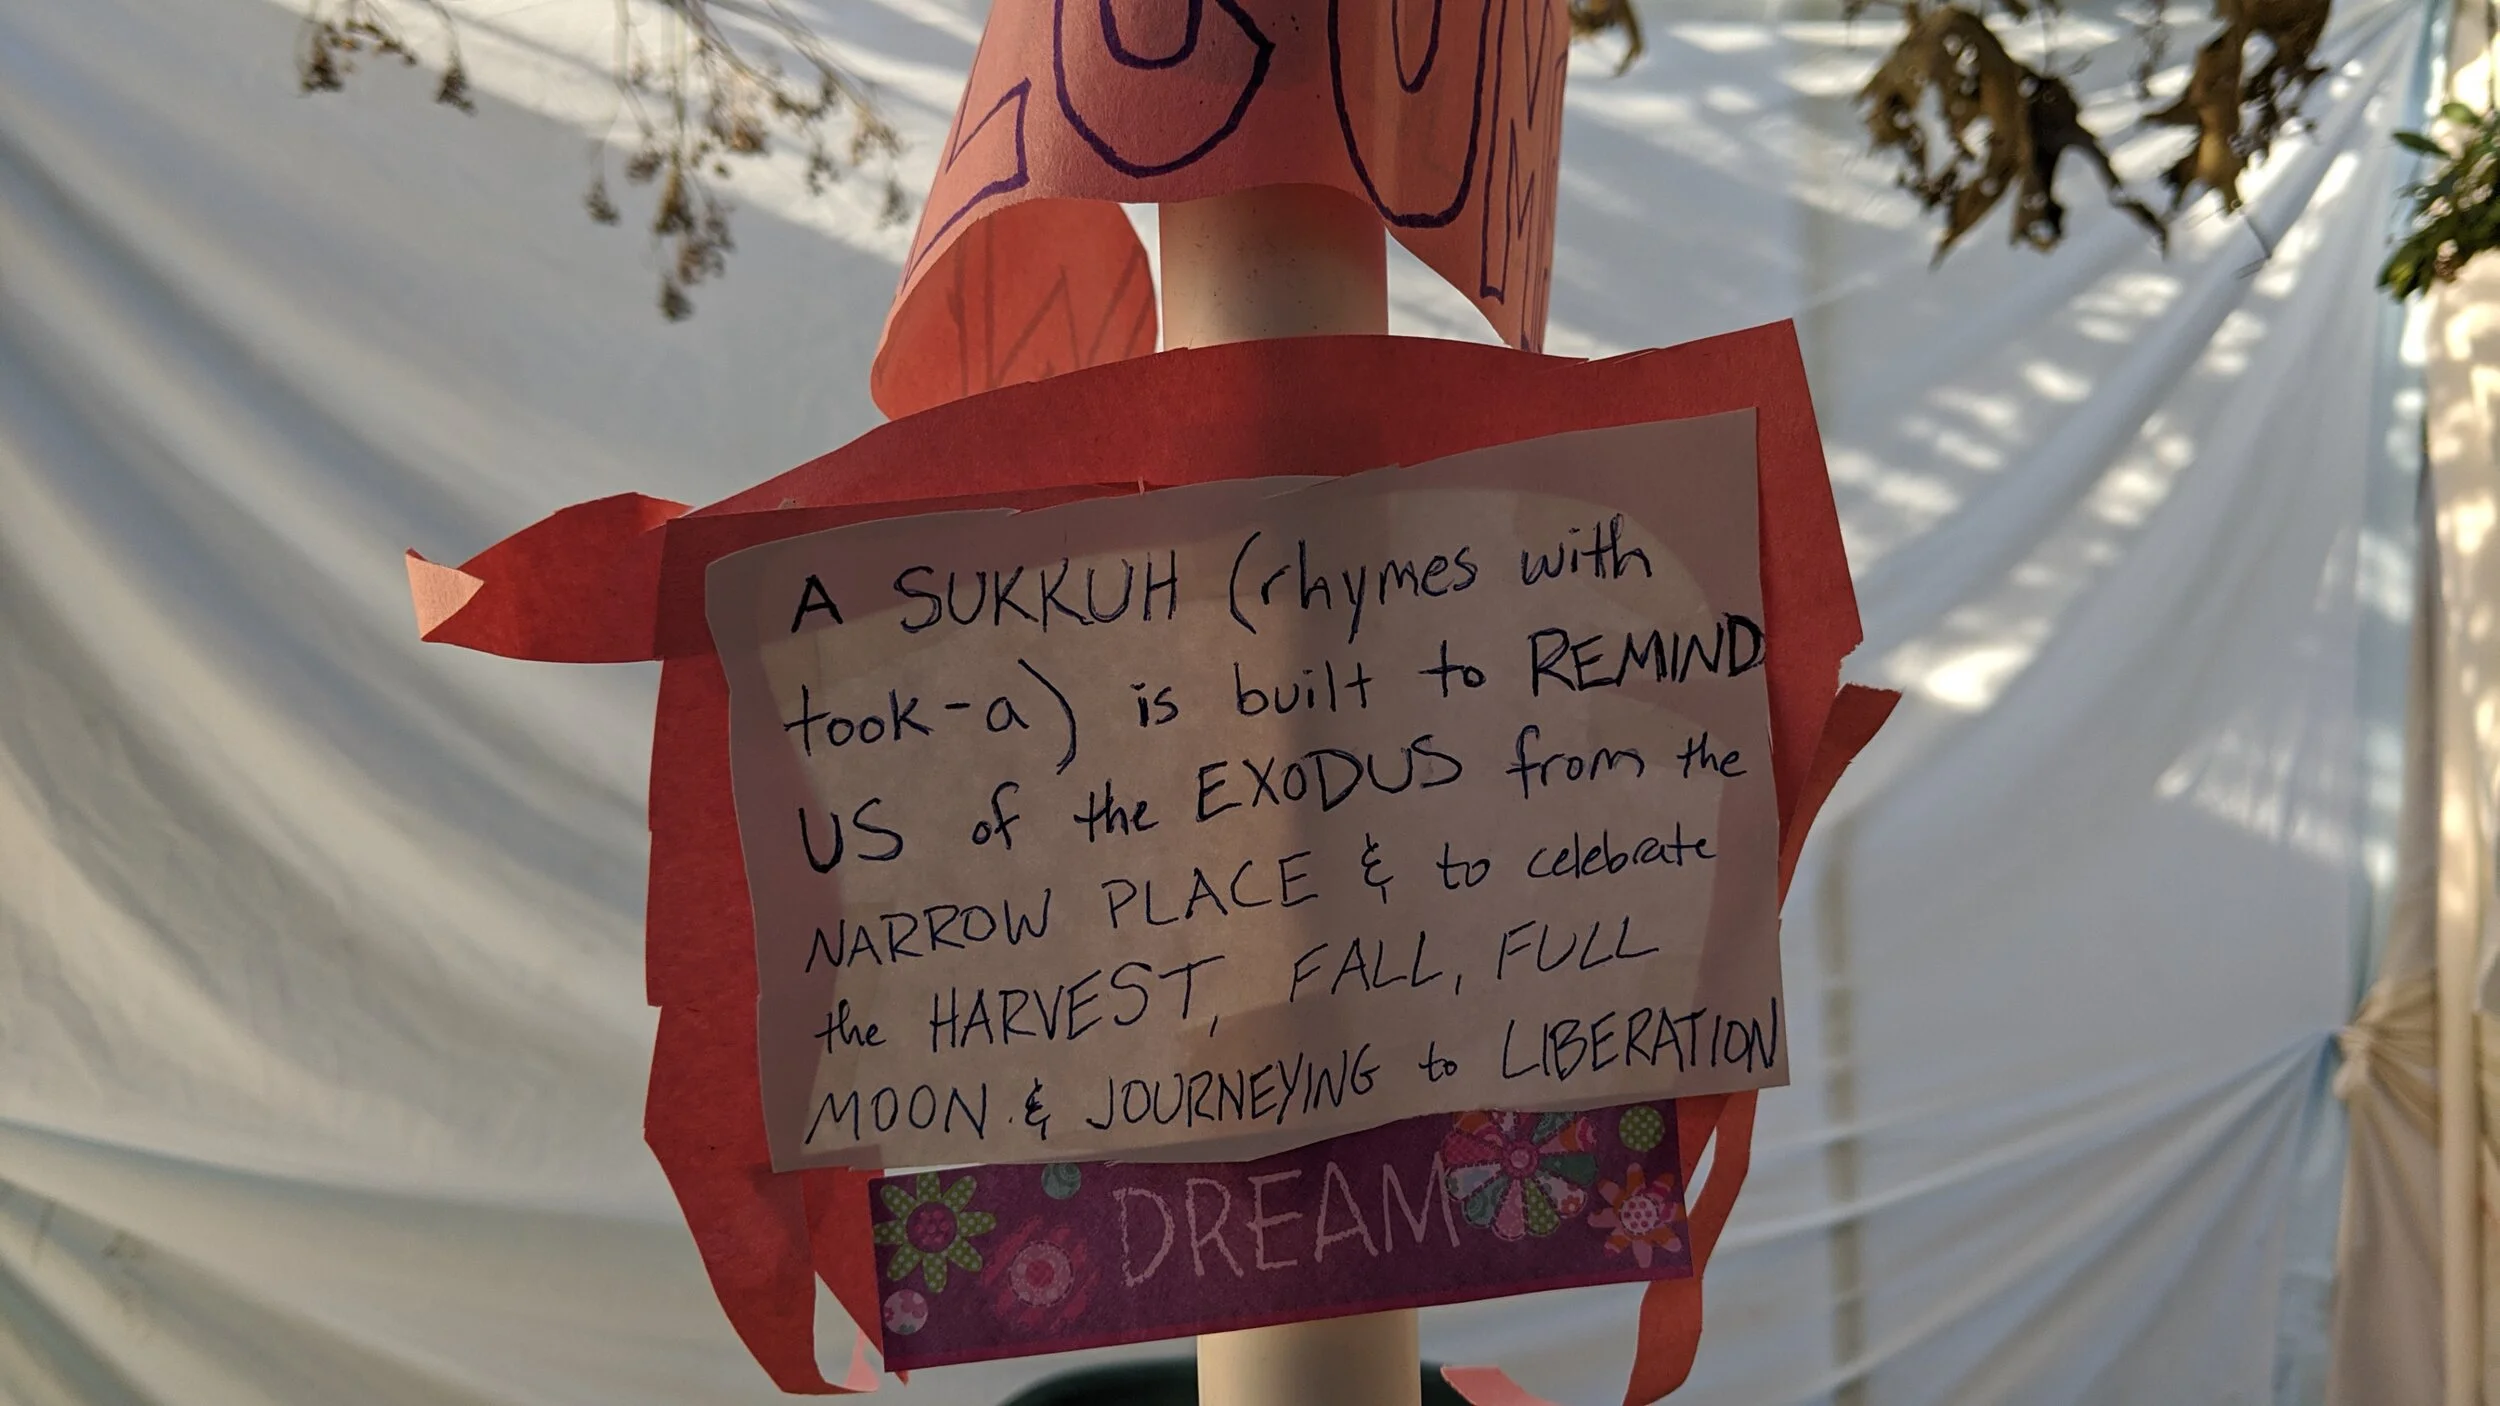 A SUKKUH (rhymes with
took-a) is built to REMIND
US of the EXODUS from the
NARROW PLACE & to celebrate
the HARVEST, FALL, FULL
MOON & JOURNEYING to LIBERATION
DREAM